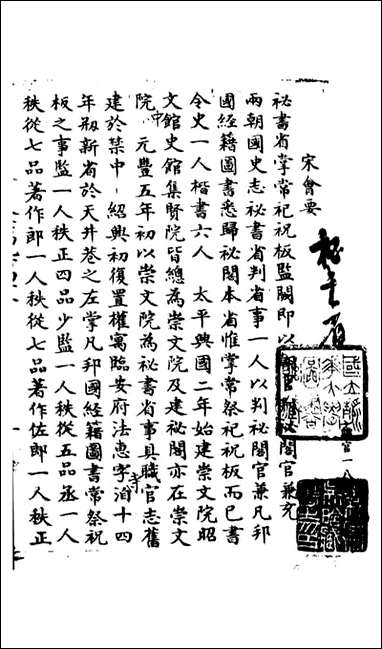 宋會要
祕書省
祕書省掌常祀祝板監闕即以 閣官兼充
兩朝國史志祕書省判省事一人以判祕閣官兼凡邦
國經籍圖書悉歸祕閣本省惟掌常祭祀祝板而已書
令史一人楷書六人 太平興國二年始建崇文院昭
文館史館集賢院皆總為崇文院及建祕閣亦在崇文
院中 元豐五年初以崇文院為祕書省事具職官志舊
建於禁中 紹興初復置權寓臨安府法惠寺洎十四
年刱新省於天井巷之左掌凡邦國經籍圖書常祭祝
板之事監一人秩正四品少監一人秩從五品丞一人
秩從七品著作郎一人秩從七品著作佐郎一人秩正